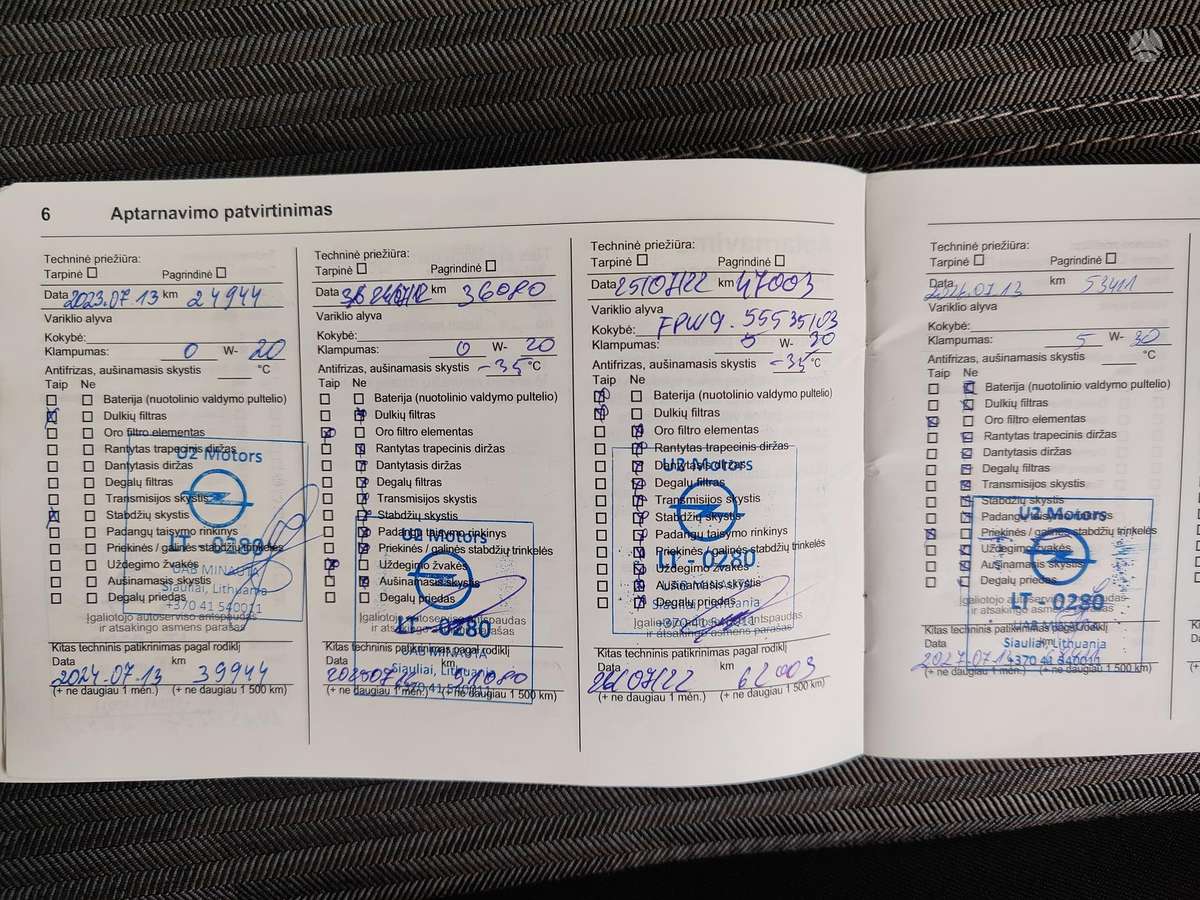 6 Aptarnavimo patvirtinimas
Techninė priežiūra:
Tarpinė Pagrindinė
Data 2023.07.13 km 24944
Variklio alyva
Kokybė:
Klampumas: 0 W- 20
Antifrizas, aušinamasis skystis °C
Taip Ne
Baterija (nuotolinio valdymo pultelio)
Dulkių filtras
Oro filtro elementas
Rantytas trapecinis diržas
Dantytasis diržas
Degalų filtras
Transmisijos skystis
Stabdžių skystis
Padangų taisymo rinkinys
Priekinės / galinės stabdžių trinkelės
Uždegimo žvakės
Aušinamasis skystis
Degalų priedas
U2 Motors
LT - 0280
UAB MINAUTA
Šiauliai, Lithuania
+370 41 540011
Įgaliotojo autoserviso antspaudas
ir atsakingo asmens parašas
Kitas techninis patikrinimas pagal rodiklį
Data km
2024.07.13 39944
(+ ne daugiau 1 mėn.) (+ ne daugiau 1 500 km)
Techninė priežiūra:
Tarpinė Pagrindinė
Data km 36080
Variklio alyva
Kokybė:
Klampumas: 0 W- 20
Antifrizas, aušinamasis skystis -35 °C
Taip Ne
Dulkių filtras
Oro filtro elementas
Rantytas trapecinis diržas
Dantytasis diržas
Degalų filtras
Transmisijos skystis
Stabdžių skystis
Padangų taisymo rinkinys
Priekinės / galinės stabdžių trinkelės
Uždegimo žvakės
Aušinamasis skystis
Degalų priedas
U2 Motors
LT - 0280
UAB MINAUTA
Šiauliai, Lithuania
+370 41 540011
Įgaliotojo autoserviso antspaudas
ir atsakingo asmens parašas
Kitas techninis patikrinimas pagal rodiklį
Data km
(+ ne daugiau 1 mėn.) (+ ne daugiau 1 500 km)
Techninė priežiūra:
Tarpinė Pagrindinė
Data 25/07/22 km 47003
Variklio alyva
Kokybė: FPW9.55535/03
Klampumas: 5 W- 30
Antifrizas, aušinamasis skystis -35 °C
Taip Ne
Baterija (nuotolinio valdymo pultelio)
Dulkių filtras
Oro filtro elementas
Rantytas trapecinis diržas
Dantytasis diržas
Degalų filtras
Transmisijos skystis
Stabdžių skystis
Padangų taisymo rinkinys
Priekinės / galinės stabdžių trinkelės
Uždegimo žvakės
Aušinamasis skystis
Degalų priedas
U2 Motors
LT - 0280
Šiauliai, Lithuania
+370 41 540011
Įgaliotojo autoserviso antspaudas
ir atsakingo asmens parašas
Kitas techninis patikrinimas pagal rodiklį
Data km
26/07/22 62003
(+ ne daugiau 1 mėn.) (+ ne daugiau 1 500 km)
Techninė priežiūra:
Tarpinė Pagrindinė
Data km 53411
Variklio alyva
Kokybė:
Klampumas: 5 W- 30
Antifrizas, aušinamasis skystis °C
Taip Ne
Baterija (nuotolinio valdymo pultelio)
Dulkių filtras
Oro filtro elementas
Rantytas trapecinis diržas
Dantytasis diržas
Degalų filtras
Transmisijos skystis
Stabdžių skystis
Padangų taisymo rinkinys
Priekinės / galinės stabdžių trinkelės
Uždegimo žvakės
Aušinamasis skystis
Degalų priedas
U2 Motors
LT - 0280
UAB MINAUTA
Šiauliai, Lithuania
+370 41 540011
Įgaliotojo autoserviso antspaudas
ir atsakingo asmens parašas
Kitas techninis patikrinimas pagal rodiklį
Data km
(+ ne daugiau 1 mėn.) (+ ne daugiau 1 500 km)